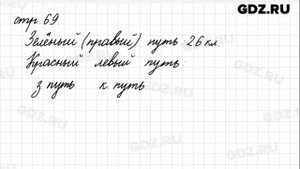 GDZ.RU
стр. 69
Зелёный (правый) путь: 26 кл.
Красный левый путь:
з путь к путь